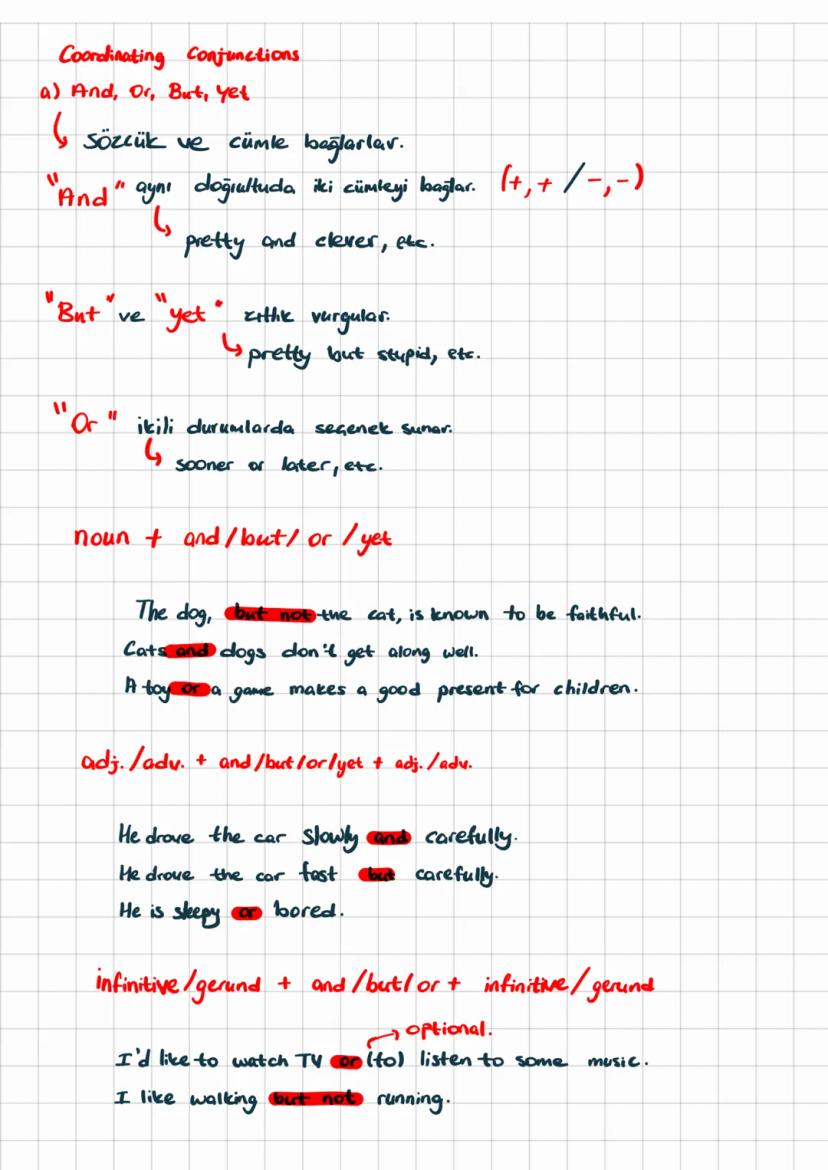 Coordinating Conjunctions
a) And, Or, But, Yet
sözcük ve cümle bağlarlar.
"And" aynı doğrultuda iki cümleyi bağlar. (+,+ / -,-)
pretty and clever, etc.
"But" ve "yet" zıtlık vurgular.
pretty but stupid, etc.
"Or" ikili durumlarda seçenek sunar.
sooner or later, etc.
noun + and/but/ or /yet
The dog, but not the cat, is known to be faithful.
Cats and dogs don't get along well.
A toy or a game makes a good present for children.
adj./adv. + and/but/or/yet + adj./adv.
He drove the car slowly and carefully.
He drove the car fast but carefully.
He is sleepy or bored.
infinitive/gerund + and/but/or + infinitive/gerund
optional.
I'd like to watch TV or (to) listen to some music.
I like walking but not running.